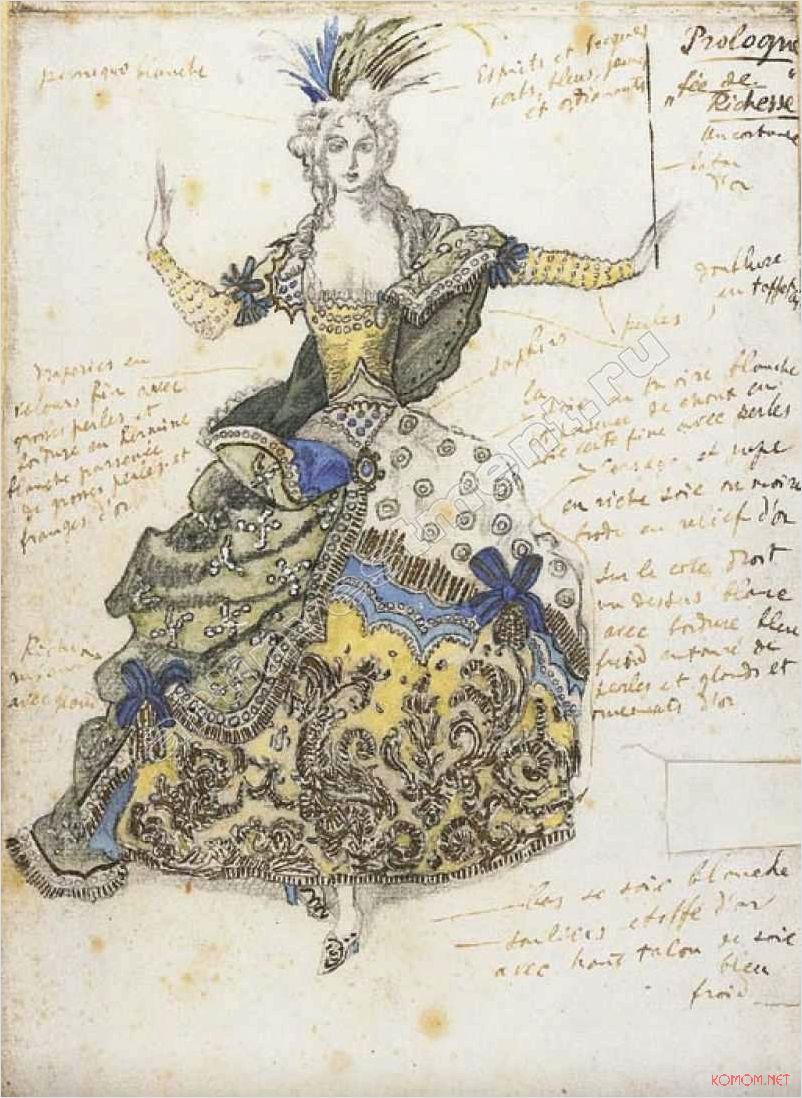 perruque blanche
Esprits et
verts, bleus, jaunes
et
Prologue
"fée de
Richesse"
un costume
d'or
doublure
en taffetas
perles
saphirs
Draperies en
velours fin avec
grosses perles et
bordure en hermine
blanche parsemée
de grosses perles et
franges d'or
la
soie ou moire blanche
en
soie verte fine avec perles
Corsage et jupe
en riche soie ou moire
brodé en relief d'or
Sur le coté droit
un dessus blanc
avec bordure bleu
froid entouré de
perles et glands et
ornements d'or
avec
Bas de soie blanche
souliers étoffe d'or
avec haut talon de soie
bleu
froid
ment.ru
KOMOM.NET